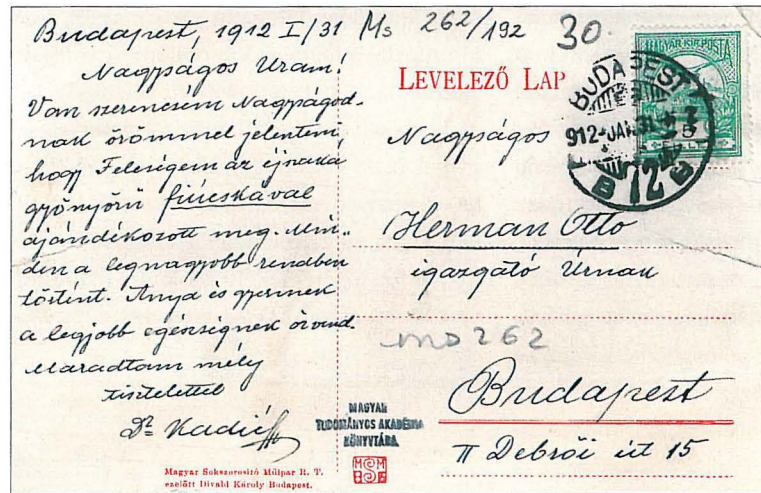 Budapest, 1912 I/31 Ms 262/192 30.
Nagyságos Uram!
Van szerencsém Nagyságod-
nak örömmel jelenteni,
hogy Feleségem az éjszaká
gyönyörű fiúcskával
ajándékozott meg. Min-
den a legnagyobb rendben
történt. Anya és gyermek
a legjobb egészségnek örvend.
Maradtam mély
tisztelettel
Dr Kadić
Magyar Sokszorosító Műipar R. T.
ezelőtt Divald Károly Budapest.
MAGYAR
TUDOMÁNYOS AKADÉMIA
KÖNYVTÁRA
MAGYAR KIR. POSTA
LEVELEZŐ LAP
BUDAPEST
912 JAN 31
B 72 B
Nagyságos
Herman Otto
igazgató Úrnak
ms 262
Budapest
II Debrői út 15